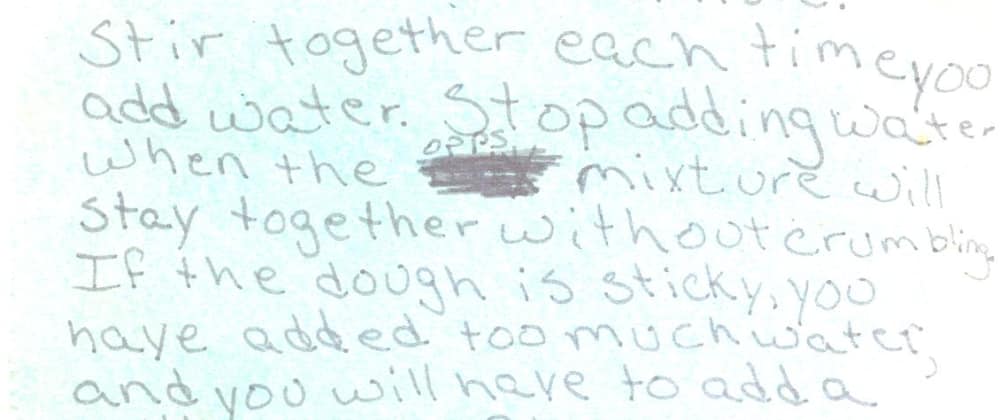 Stir together each time you
add water. Stop adding water
opps
when the mixture will
stay together without crumbling.
If the dough is sticky, you
have added too much water,
and you will have to add a